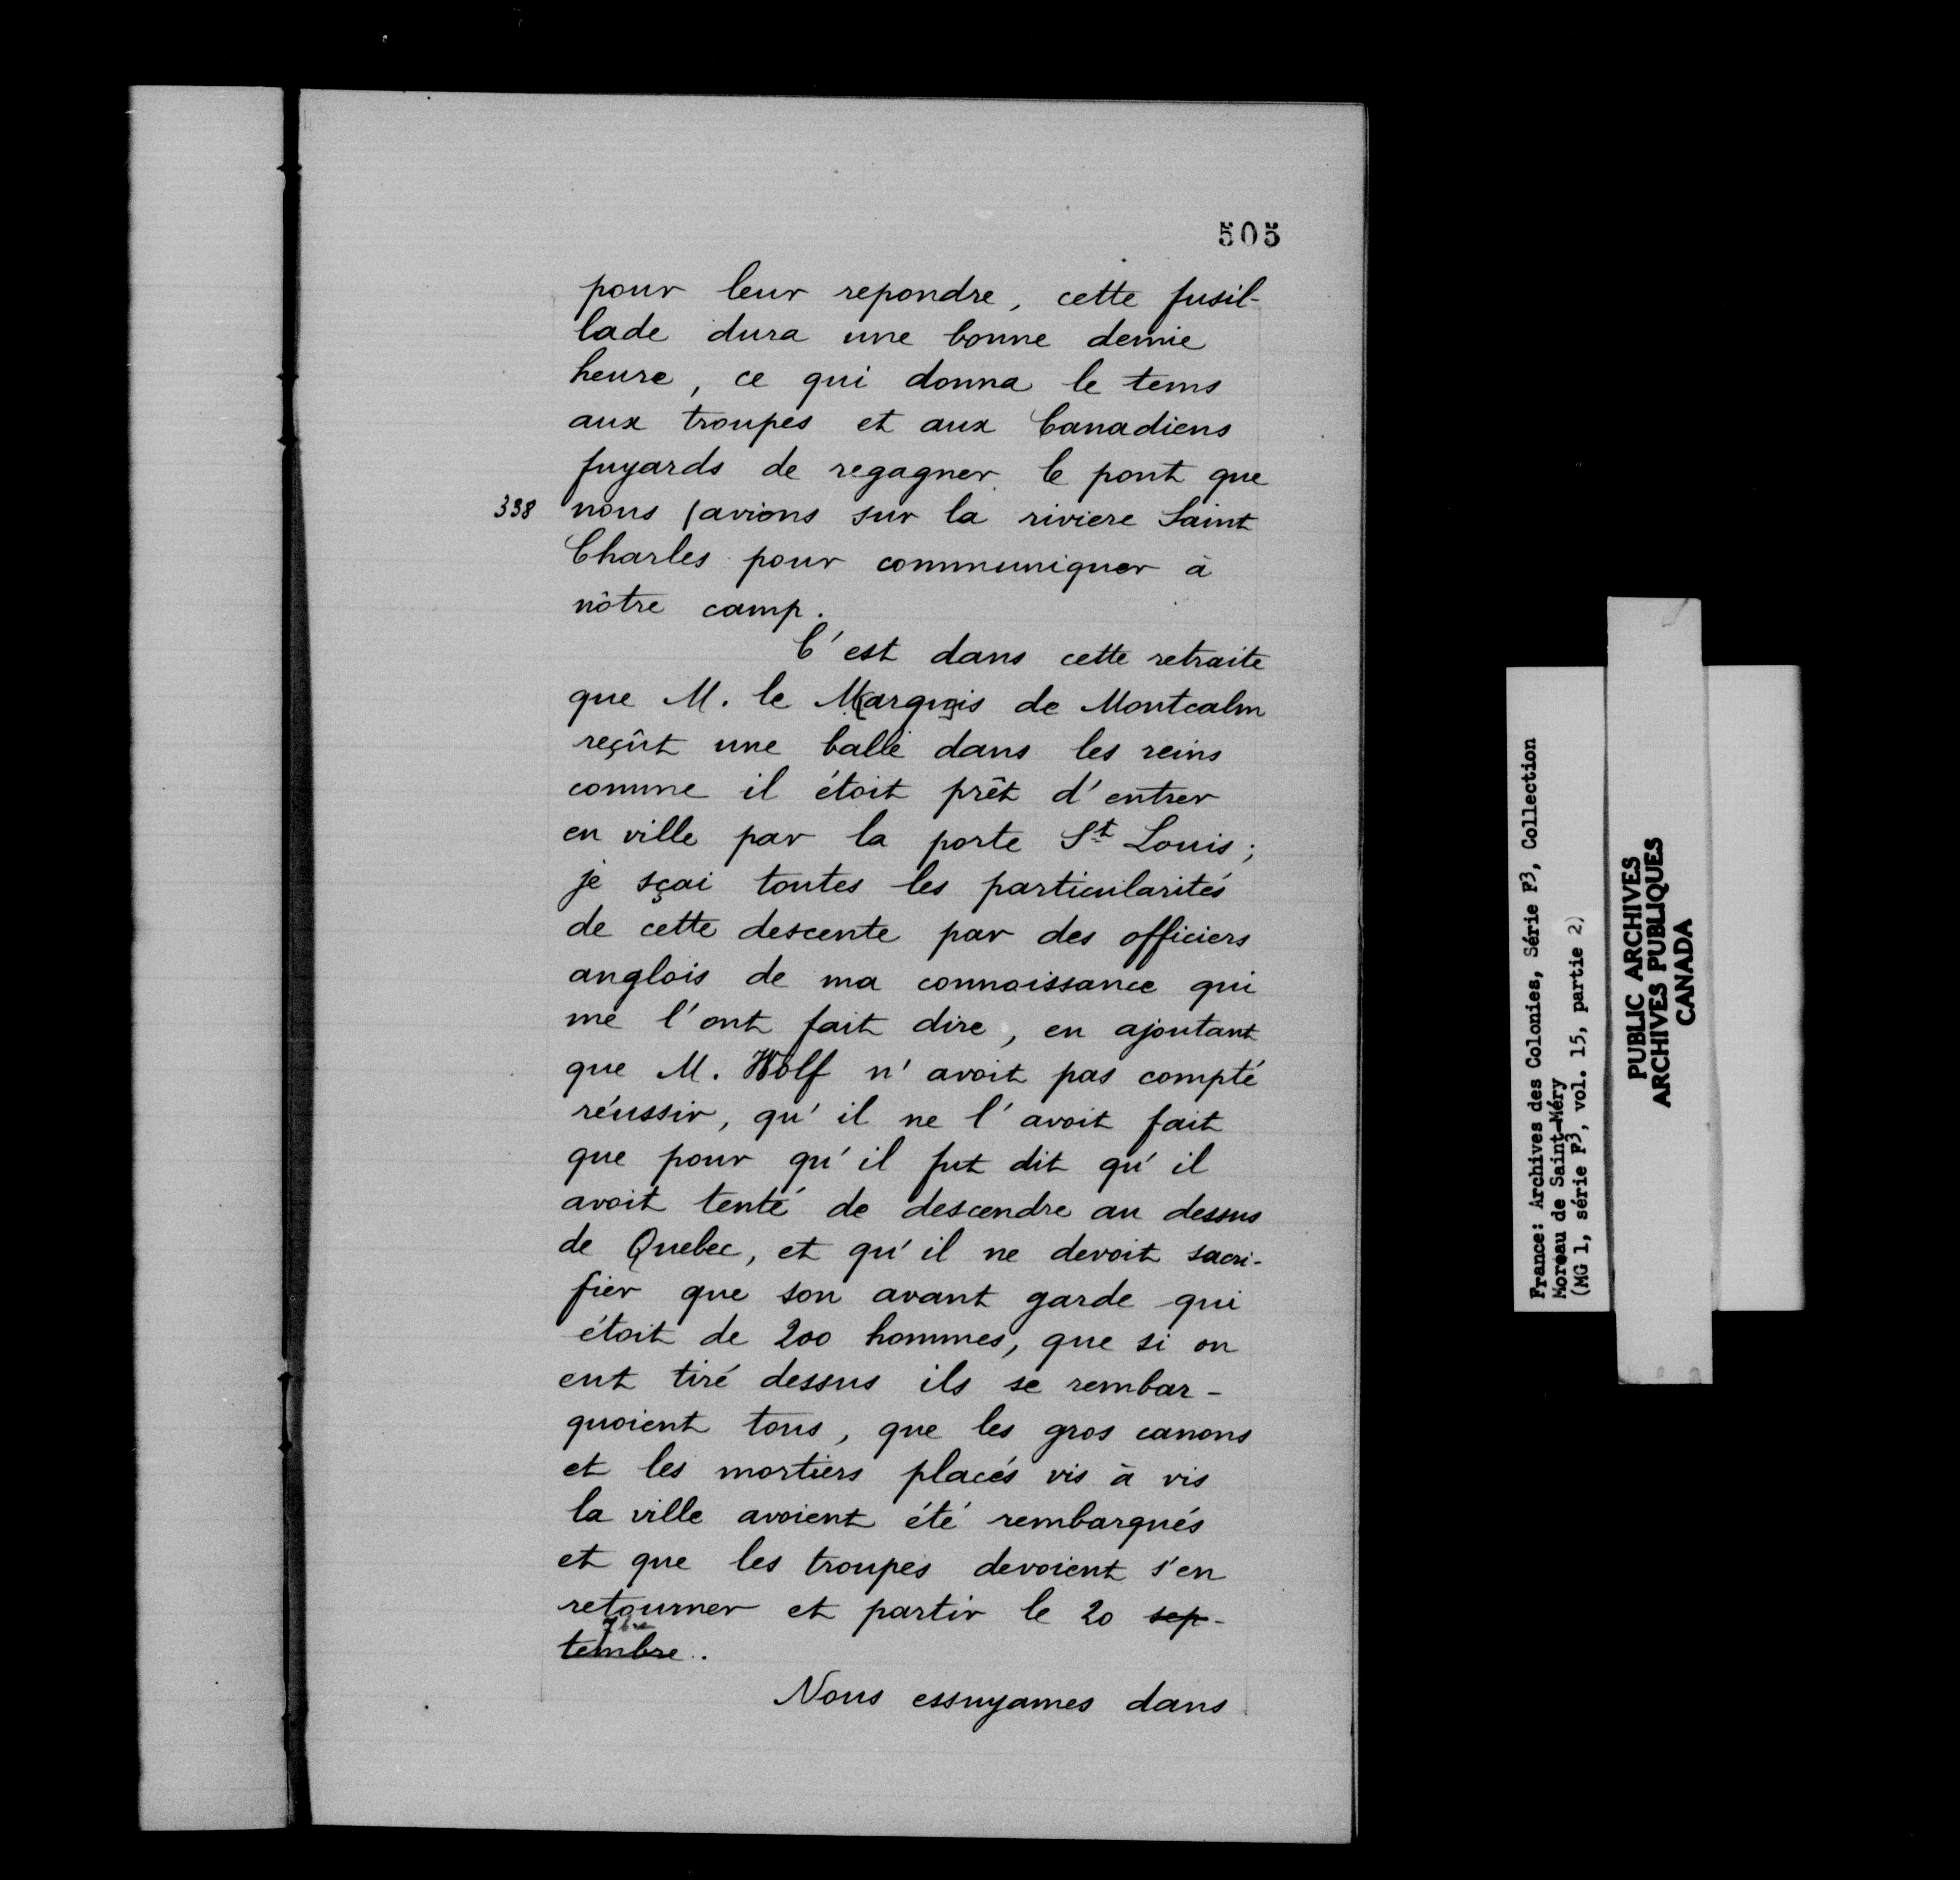 505
pour leur repondre, cette fusil-
lade dura une bonne demie
heure, ce qui donna le tems
aux troupes et aux Canadiens
fuyards de regagner le pont que
338 nous (avions sur la riviere Saint
Charles pour communiquer à
nôtre camp.
C'est dans cette retraite
que M. le Marquis de Montcalm
reçût une balle dans les reins
comme il étoit prêt d'entrer
en ville par la porte St Louis;
je sçai toutes les particularités
de cette descente par des officiers
anglois de ma connoissance qui
me l'ont fait dire, en ajoutant
que M. Wolf n'avoit pas compté
réussir, qu'il ne l'avoit fait
que pour qu'il fut dit qu'il
avoit tenté de descendre au dessus
de Quebec, et qu'il ne devoit sacri-
fier que son avant garde qui
étoit de 200 hommes, que si on
eut tiré dessus ils se rembar-
quoient tous, que les gros canons
et les mortiers placés vis à vis
la ville avoient été rembarqués
et que les troupes devoient s'en
retourner et partir le 20 sep-
7bre
tembre.
Nous essuyames dans
France: Archives des Colonies, Série F3, Collection
Moreau de Saint-Méry
(MG 1, série F3, vol. 15, partie 2)
PUBLIC ARCHIVES
ARCHIVES PUBLIQUES
CANADA